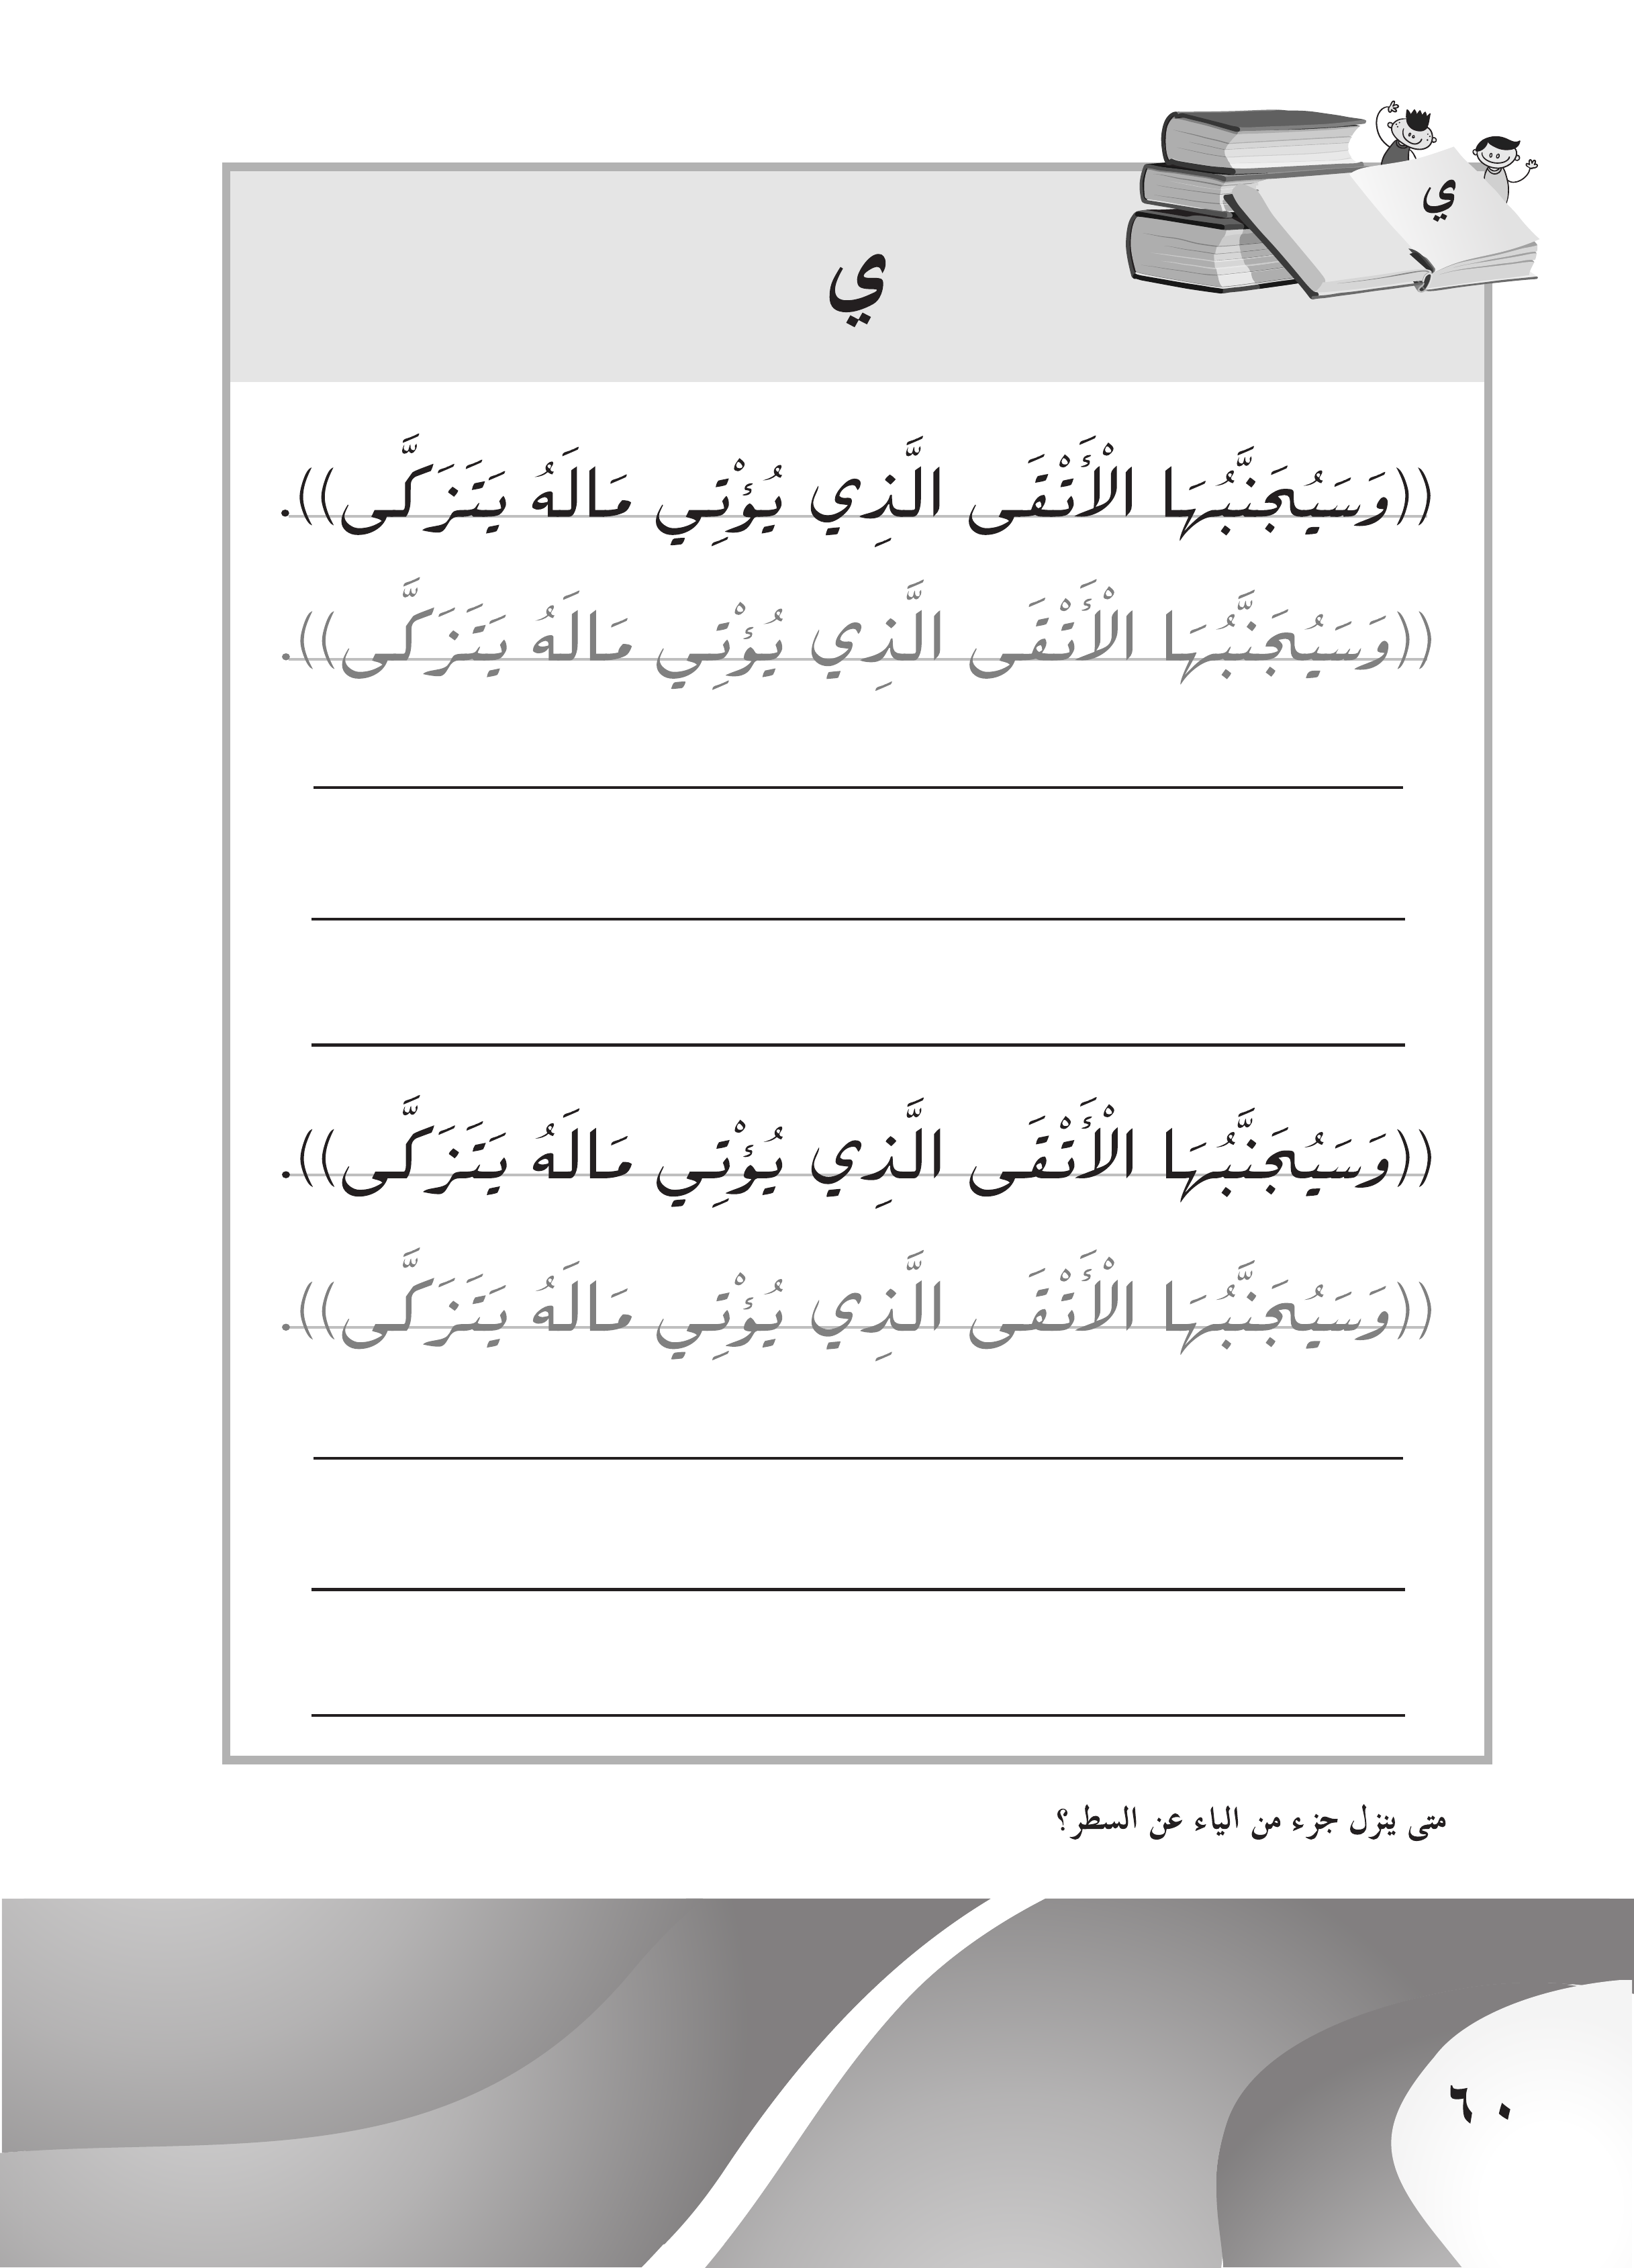 ي
ي
((وَسَيُجَنَّبُهَا الْأَتْقَى الَّذِي يُؤْتِي مَالَهُ يَتَزَكَّى)).
((وَسَيُجَنَّبُهَا الْأَتْقَى الَّذِي يُؤْتِي مَالَهُ يَتَزَكَّى)).
((وَسَيُجَنَّبُهَا الْأَتْقَى الَّذِي يُؤْتِي مَالَهُ يَتَزَكَّى)).
((وَسَيُجَنَّبُهَا الْأَتْقَى الَّذِي يُؤْتِي مَالَهُ يَتَزَكَّى)).
متى ينزل جزء من الياء عن السطر؟
٦٠